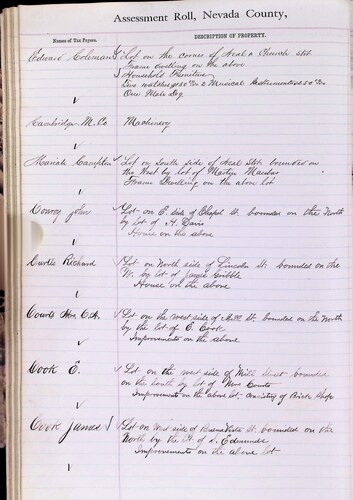 Assessment Roll, Nevada County,
Names of Tax Payers.
DESCRIPTION OF PROPERTY.
Edward Coleman
Lot on the corner of Neal & Church Sts
Frame Dwelling on the above
Household Furniture
Two watches $150 2 Musical Instruments $350
One Male Dog
Cambridge M. Co
Machinery
Mariah Campton
Lot on South side of Neal St bounded on
the West by lot of
Frame Dwelling on the above lot
Conroy John
Lot on E. side of Chapel St. bounded on the North
by lot of H. Davis
House on the above
Curtis Richard
Lot on North side of Lincoln St. bounded on the
W. by lot of James Gribble
House on the above
Couts Wm C. A.
Lot on the west side of Mill St. bounded on the North
by the lot of E. Cook
Improvements on the above
Cook E.
Lot on the west side of Mill Street bounded
on the South by lot of Wm Couts
Improvements on the above lot consisting of Brick Shop
Cook James
Lot on West side of Buena Vista St. bounded on the
North by the lot of S. Edmunds
Improvements on the above lot